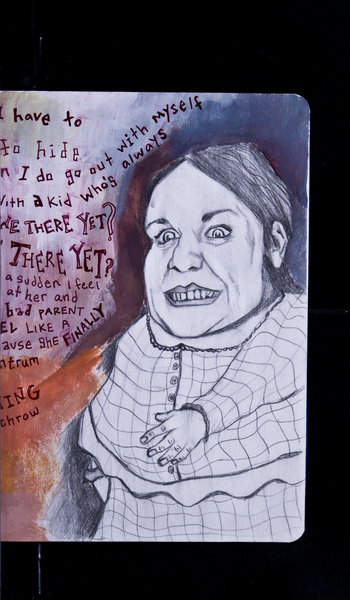 I have to
to hide
n I do go out with myself
with a kid who's always
WE THERE YET?
THERE YET?
a sudden I feel
at her and
bad PARENT
EL LIKE A
ause she FINALLY
ntrum
ING
throw